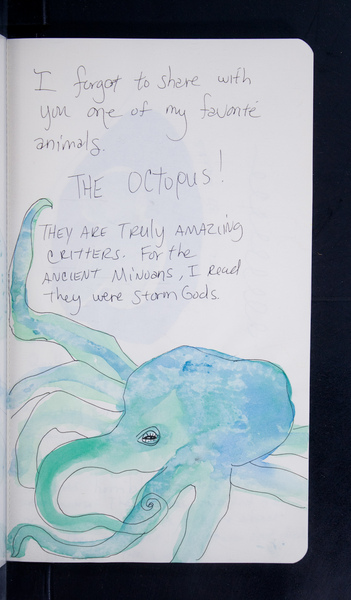 I forgot to share with
you one of my favorite
animals.
THE OCTOPUS!
THEY ARE Truly AMAZING
CRITTERS. For the
ANCIENT MINOANS, I Read
they were Storm Gods.